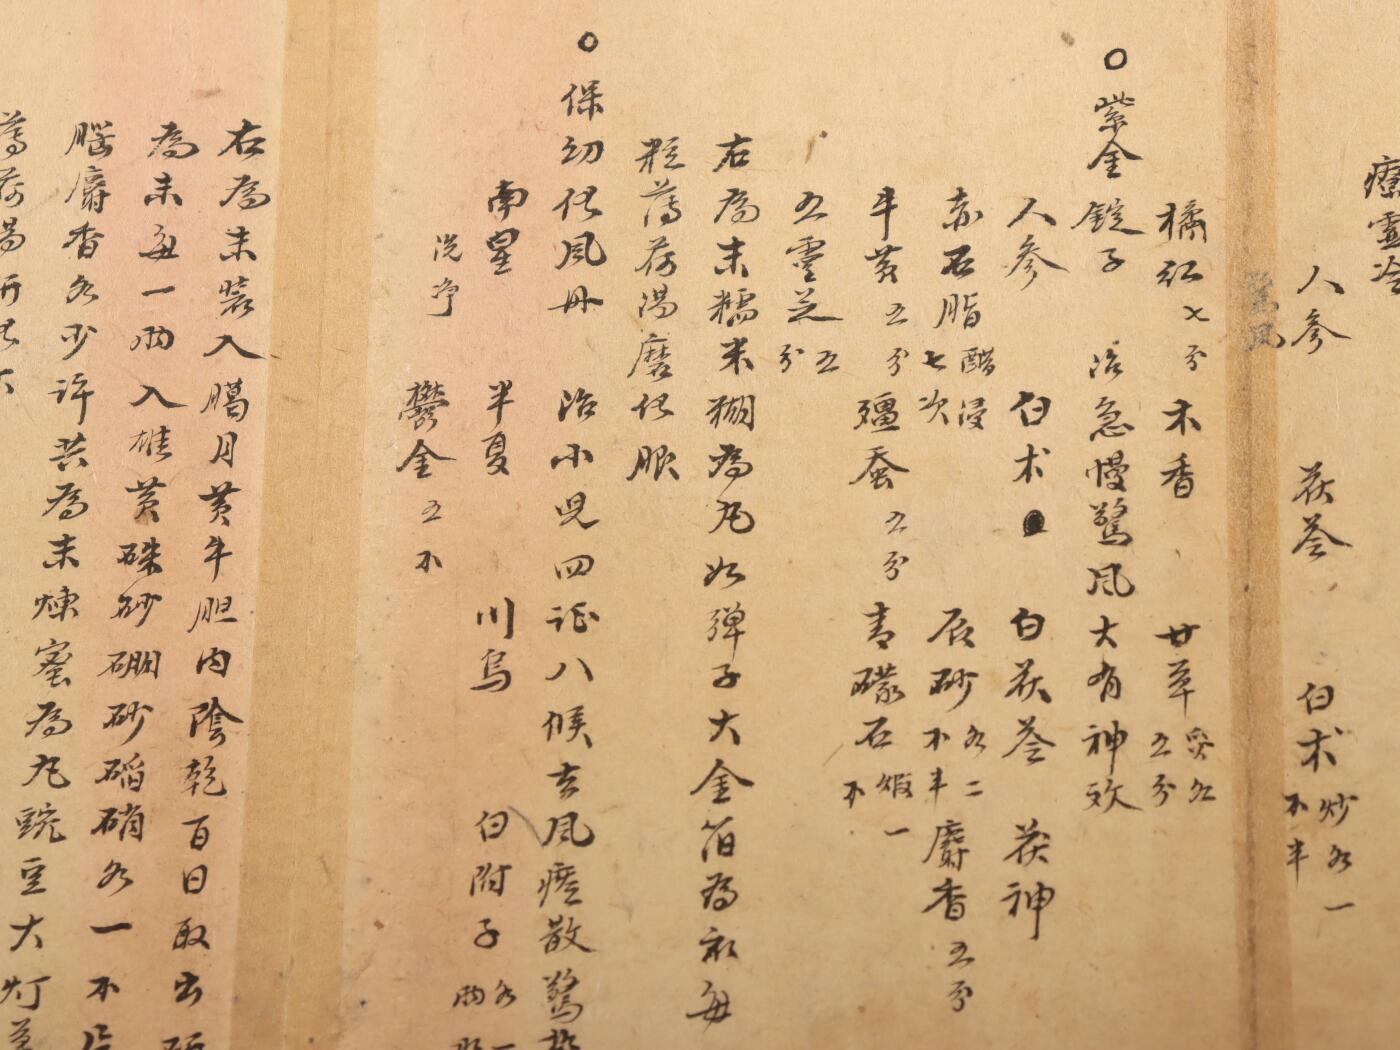 療靈冷
人参　茯苓　白术炒各一不半
驚风
橘红七分　木香　甘草炙各五分
○紫金錠子　治急慢驚风大有神效
人参　白术　白茯苓　茯神
赤石脂醋浸七次　辰砂各二不半　麝香五分
牛黄五分　殭蚕五分　青礞石煅一不
五靈芝五分
右為末糯米糊為丸如弹子大金箔為衣每
粒薄荷湯磨化服
○保幼化风丹　治小児四证八候去风痰散驚
南星　半夏　川烏　白附子各一兩
洗净
鬱金五不
右為末装入臈月黄牛胆内陰乾百日取出
為末每一兩入雄黄硃砂硼砂硝各一不
腦麝香各少許共為末煉蜜為丸豌豆大灯
薄荷湯